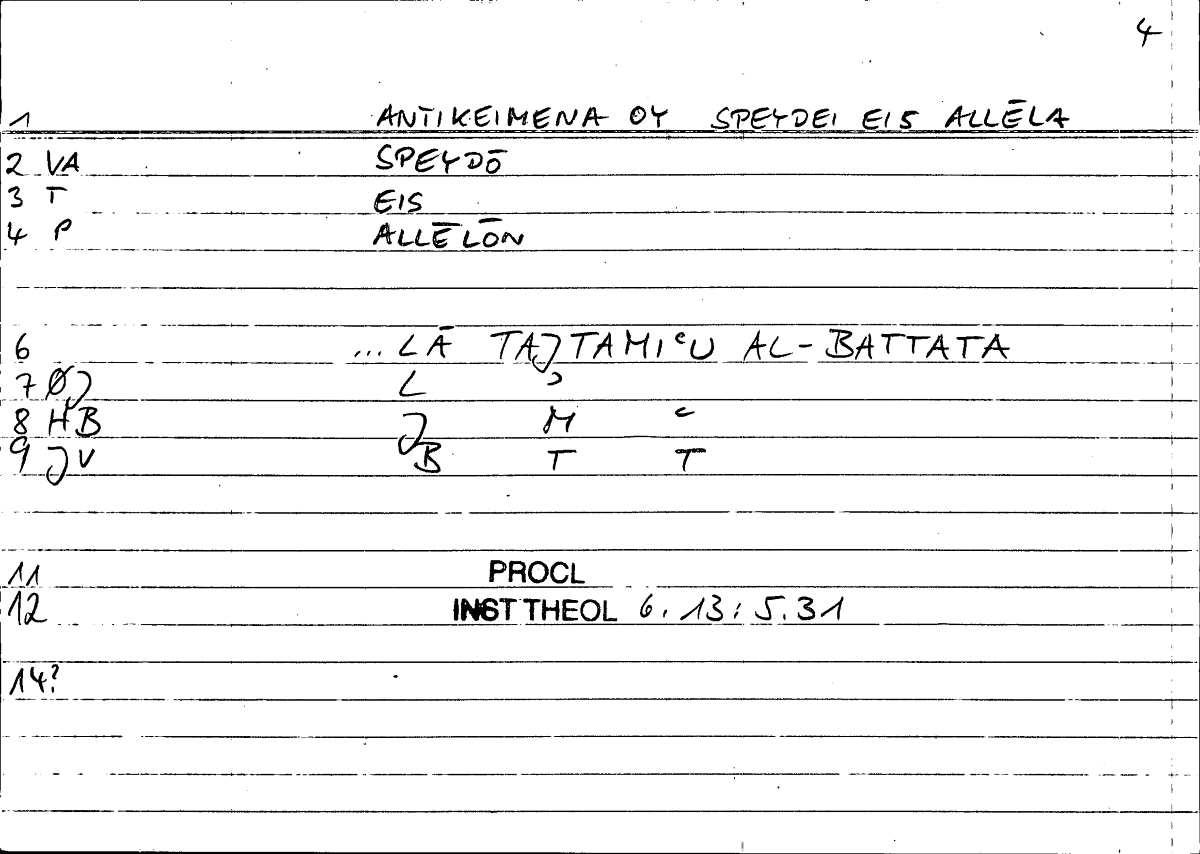 4
1 ANTIKEIMENA OY SPEYDEI EIS ALLĒLA
2 VA SPEYDŌ
3 T EIS
4 P ALLĒLŌN
6 ... LĀ TAJTAMIʿU AL-BATTATA
7 ØJ L ʾ
8 HB J M ʿ
9 JV B T T
11 PROCL
12 INST THEOL 6.13:5.31
14?